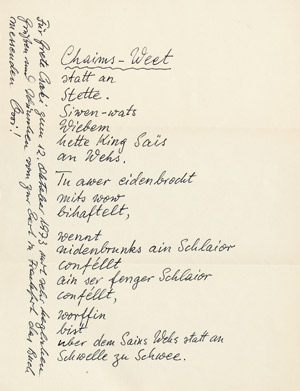 Chaims-Weet
statt an
Stette.
Siwen-wats
Wiebem
hette King Saïs
an Wehs.
Tu awer eidenbrocht
mits wow
bihaftelt,
wennt
nidenbrunks ain Schlaior
conféllt
ain ser fenger Schlaior
conféllt,
worffin
bist
uber dem Sains Wehs statt an
Schwelle zu Schwee.
Für Grete zum 12. Oktober 1973 mit sehr herzlichen
Grüßen und Wünschen von zur Zeit in Frankfurt das Buch
messenden